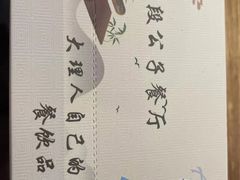 段公子餐厅
大理人自己的
餐饮品